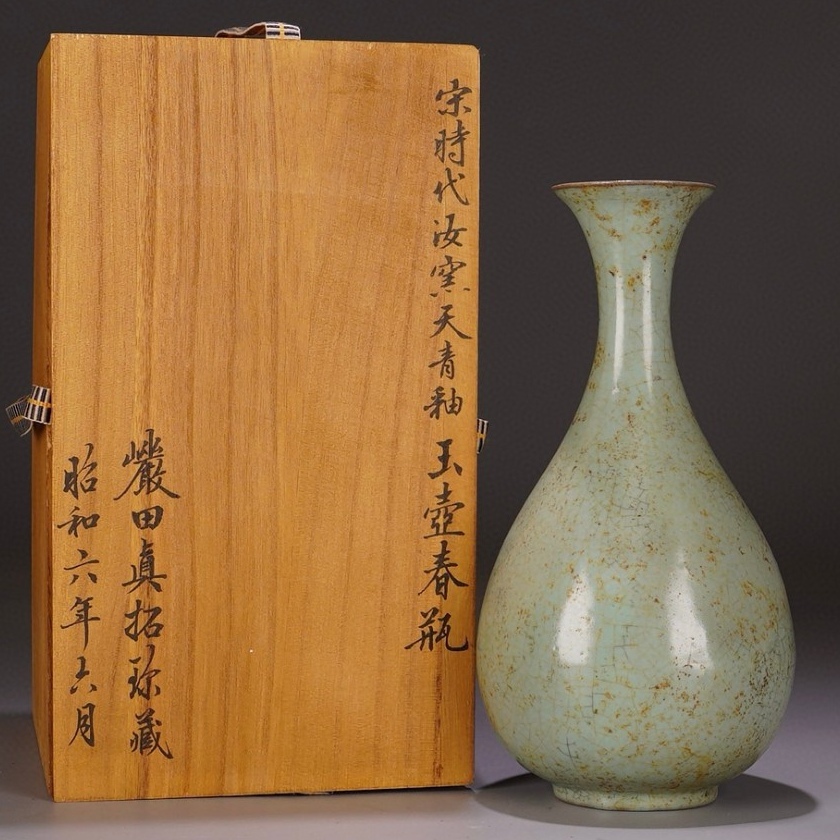 宋時代汝窯天青釉玉壺春瓶
巖田真拓珍藏
昭和六年六月